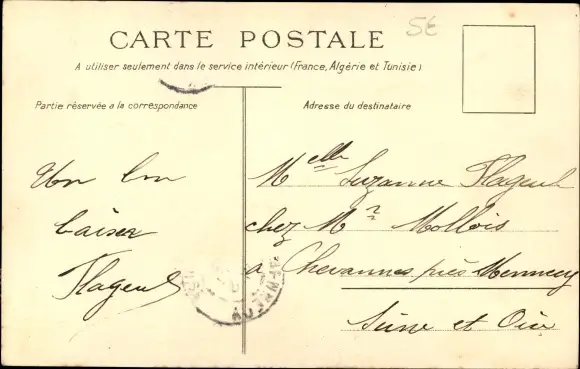 5€
CARTE POSTALE
A utiliser seulement dans le service intérieur (France, Algérie et Tunisie)
Partie réservée a la correspondance
Adresse du destinataire
Un bon
baiser
Flageul
Melle Suzanne Flageul
chez Mr Mollois
a Chevannes près Mennecy
Seine et Oise